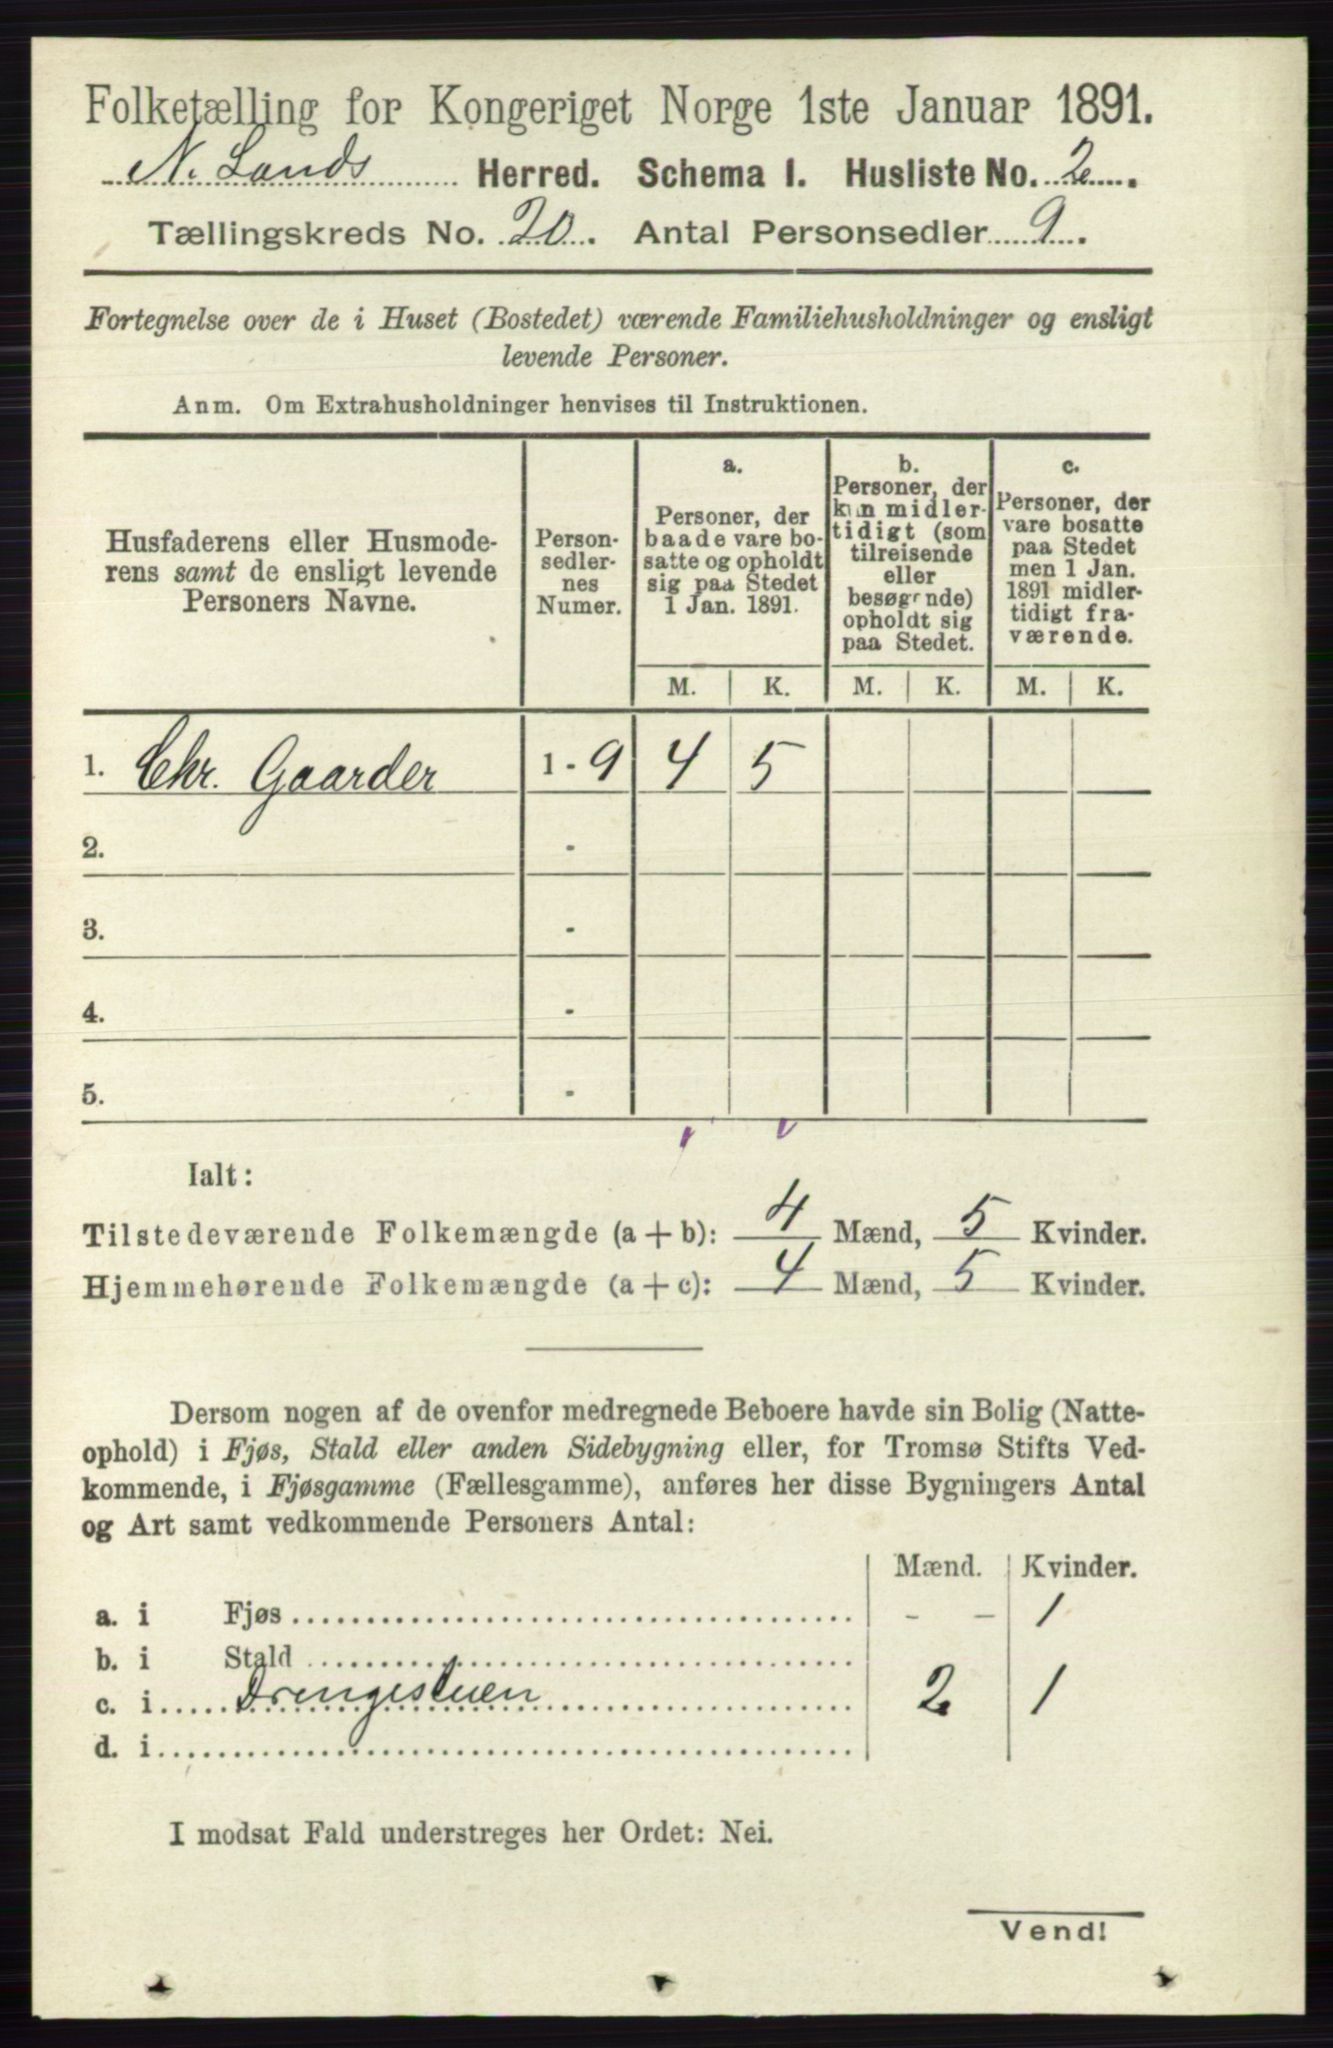 Folketælling for Kongeriget Norge 1ste Januar 1891.
N. Lands Herred. Schema I. Husliste No. 2.
Tællingskreds No. 20. Antal Personsedler 9.
Fortegnelse over de i Huset (Bostedet) værende Familiehusholdninger og ensligt
levende Personer.
Anm. Om Extrahusholdninger henvises til Instruktionen.
Husfaderens eller Husmode-
rens samt de ensligt levende
Personers Navne.
Person-
sedler-
nes
Numer.
a.
Personer, der
baade vare bo-
satte og opholdt
sig paa Stedet
1 Jan. 1891.
b.
Personer, der
kun midler-
tidigt (som
tilreisende
eller
besøgende)
opholdt sig
paa Stedet.
c.
Personer, der
vare bosatte
paa Stedet
men 1 Jan.
1891 midler-
tidigt fra-
værende.
M. K. M. K. M. K.
1. Chr. Gaarder 1 - 9 4 5
2. -
3. -
4. -
5. -
Ialt:
Tilstedeværende Folkemængde (a + b): 4 Mænd, 5 Kvinder.
Hjemmehørende Folkemængde (a + c): 4 Mænd, 5 Kvinder.
Dersom nogen af de ovenfor medregnede Beboere havde sin Bolig (Natte-
ophold) i Fjøs, Stald eller anden Sidebygning eller, for Tromsø Stifts Ved-
kommende, i Fjøsgamme (Fællesgamme), anføres her disse Bygningers Antal
og Art samt vedkommende Personers Antal:
Mænd. Kvinder.
a. i Fjøs - - 1
b. i Stald
c. i Drengestuen 2 1
d. i
I modsat Fald understreges her Ordet: Nei.
Vend!